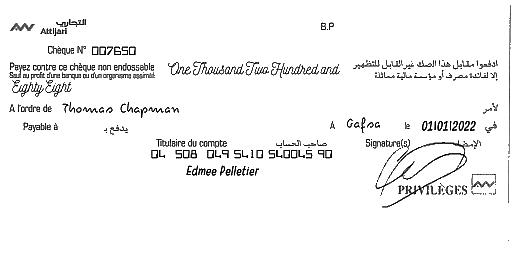 التجاري
Attijari
B.P
Chèque N° 007650
Payez contre ce chèque non endossable
Sauf au profit d'une banque ou d'un organisme assimilé
One Thousand Two Hundred and
ادفعوا مقابل هذا الصك غير القابل للتظهير
إلا لفائدة مصرف أو مؤسسة مالية مماثلة
Eighty Eight
A l'ordre de Thomas Chapman لأمر
Payable à يدفع بـ A Gafsa le 01/01/2022 في
Titulaire du compte صاحب الحساب Signature(s) الإمضاء
04 508 049 5410 540045 90
Edmee Pelletier
PRIVILÈGES